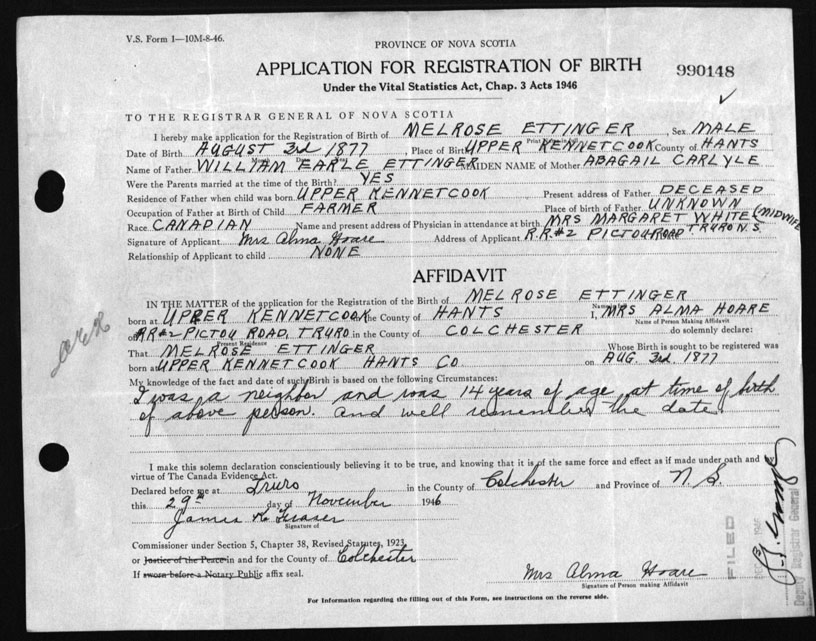 V.S. Form 1—10M-8-46.
PROVINCE OF NOVA SCOTIA
APPLICATION FOR REGISTRATION OF BIRTH
990148
Under the Vital Statistics Act, Chap. 3 Acts 1946
✓
TO THE REGISTRAR GENERAL OF NOVA SCOTIA
I hereby make application for the Registration of Birth of MELROSE ETTINGER, Sex MALE
Date of Birth AUGUST 3rd 1877, Place of Birth UPPER KENNETCOOK County of HANTS
Name of Father WILLIAM EARLE ETTINGER MAIDEN NAME of Mother ABAGAIL CARLYLE
Were the Parents married at the time of the Birth? YES
Residence of Father when child was born UPPER KENNETCOOK Present address of Father DECEASED
Occupation of Father at Birth of Child FARMER Place of birth of Father UNKNOWN
Race CANADIAN Name and present address of Physician in attendance at birth MRS MARGARET WHITE (MIDWIFE
Signature of Applicant Mrs Alma Hoare Address of Applicant R.R.#2 PICTOU ROAD TRURO N.S.
Relationship of Applicant to child NONE
AFFIDAVIT
IN THE MATTER of the application for the Registration of the Birth of MELROSE ETTINGER
born at UPPER KENNETCOOK the County of HANTS I, MRS ALMA HOARE
Name of Person Making Affidavit
of RR#2 PICTOU ROAD, TRURO in the County of COLCHESTER do solemnly declare:
Present Residence
That MELROSE ETTINGER Whose Birth is sought to be registered was
born at UPPER KENNETCOOK HANTS CO. on AUG. 3rd. 1877
My knowledge of the fact and date of such Birth is based on the following Circumstances:
I was a neighbor and was 14 years of age at time of birth
of above person. and well remember the date.
I make this solemn declaration conscientiously believing it to be true, and knowing that it is of the same force and effect as if made under oath and by
virtue of The Canada Evidence Act.
Declared before me at Truro in the County of Colchester and Province of N.S.
this 29th day of November 1946
James Fraser
Signature of
Commissioner under Section 5, Chapter 38, Revised Statutes, 1923
or Justice of the Peace in and for the County of Colchester
If sworn before a Notary Public affix seal.
Mrs Alma Hoare
Signature of Person making Affidavit
FILED
Deputy Registrar General
For Information regarding the filling out of this Form, see instructions on the reverse side.